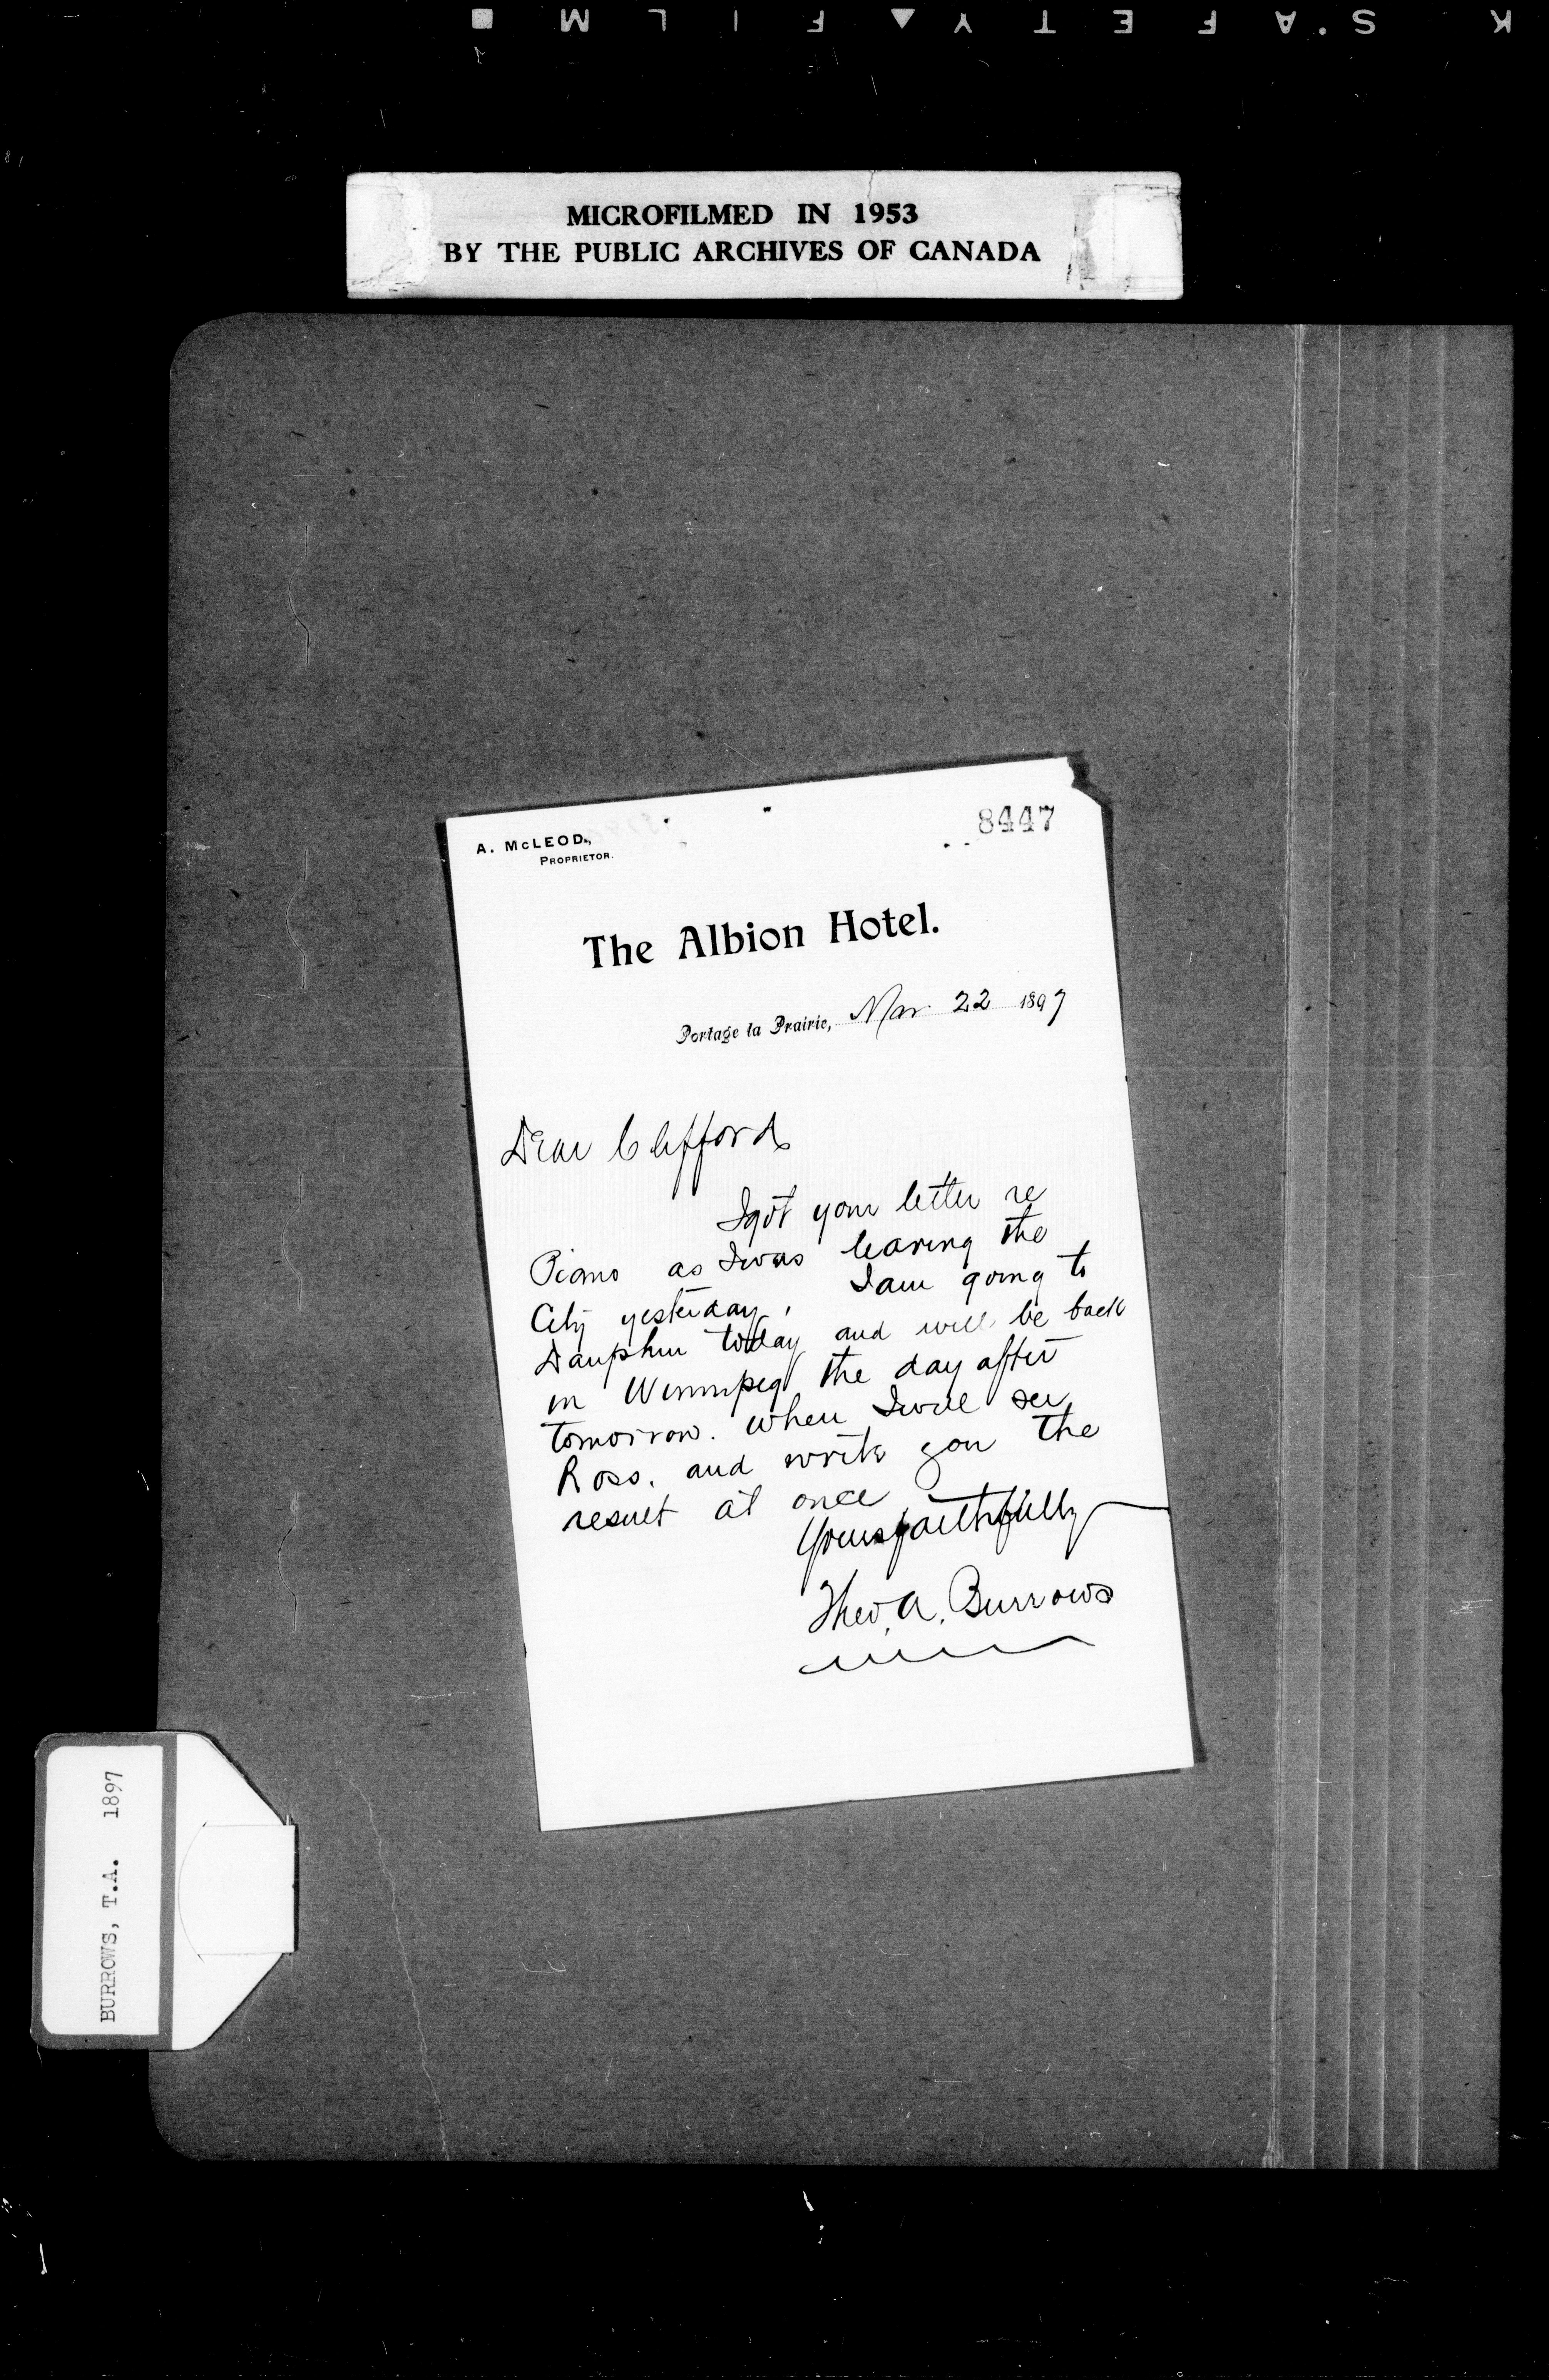 K S.AFETY▲FILM■
MICROFILMED IN 1953
BY THE PUBLIC ARCHIVES OF CANADA
A. McLEOD,
PROPRIETOR.
8447
The Albion Hotel.
Portage la Prairie, Mar 22 1897
Dear Clifford
I got your letter re
Piano as I was leaving the
City yesterday. I am going to
Dauphin today and will be back
in Winnipeg the day after
tomorrow. when I will see
Ross. and write you the
result at once
Yours faithfully
Theo. A. Burrows
BURROWS, T.A. 1897